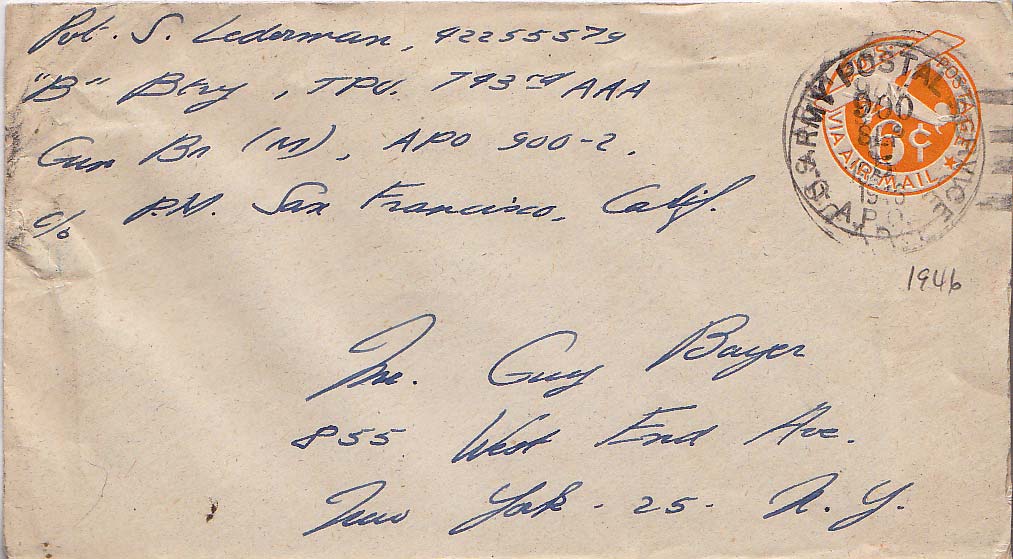 Pvt. S. Lederman, 42255579
"B" Btry, TPU. 793rd AAA
Gun Bn (M), APO 900-2,
c/o P.M. San Francisco, Calif.
ARMY POSTAL SERVICE
900
1946
A.P.O.
POSTAGE
6¢
VIA AIR MAIL
1946
Mr. Guy Bayer
855 West End Ave.
New York - 25 - N.Y.